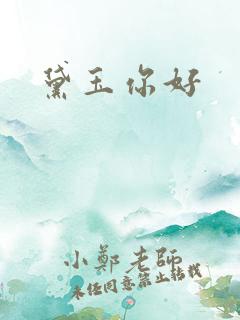 黛玉你好
小鄭老師
未经同意禁止转载